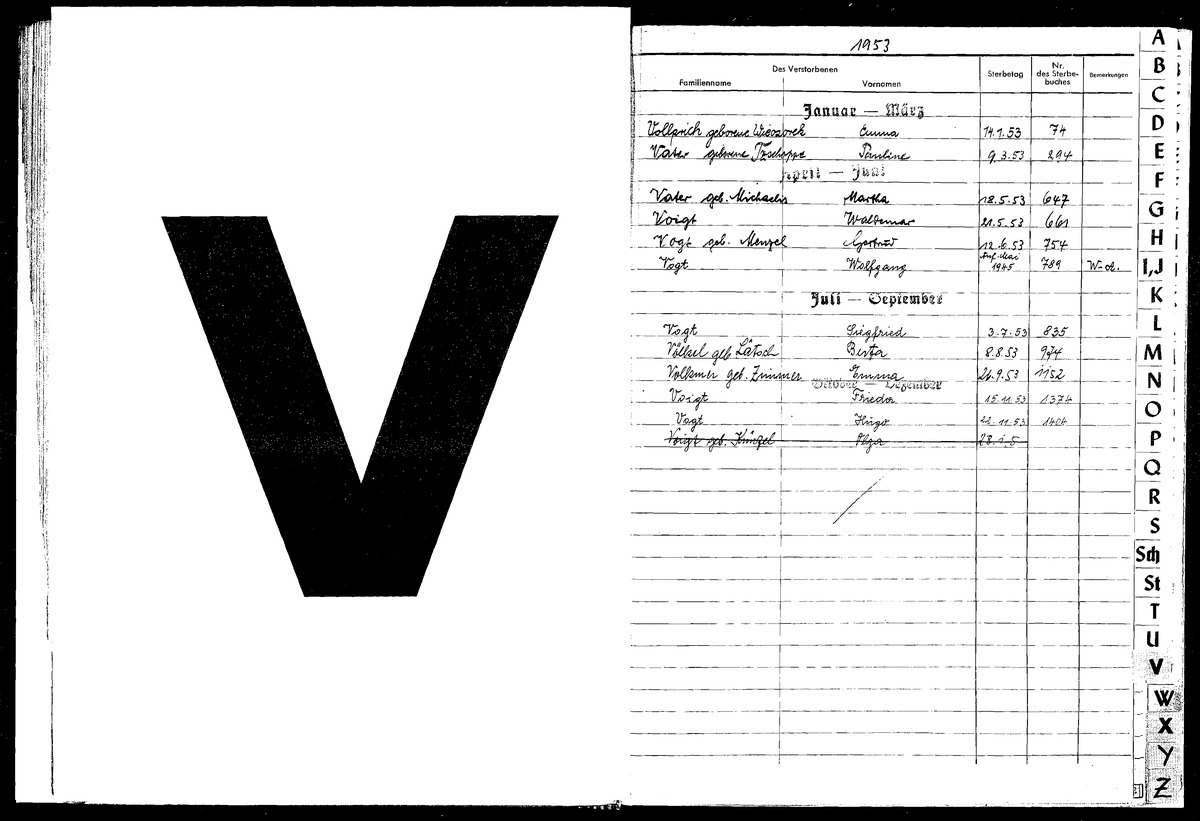 V
1953
Des Verstorbenen
Familienname Vornamen Sterbetag Nr. des Sterbe-buches Bemerkungen
Januar — März
Vollprich geborene Wieczorek Emma 14.1.53 74
Vater geborene Tzschoppe Pauline 9.3.53 294
April — Juni
Vater geb. Michaelis Martha 18.5.53 647
Voigt Waldemar 21.5.53 661
Vogt geb. Menzel Gertrud 12.6.53 754
Vogt Wolfgang Anf. Mai 1945 789
Juli — September
Vogt Siegfried 3.7.53 835
Völkel geb. Lätsch Berta 8.8.53
Volkmer geb. Zimmer Emma 26.9.53 1152
Oktober — Dezember
Voigt Frieda 15.11.53 1374
Vogt Hugo 22.11.53
Voigt geb. Künzel
A
B
C
D
E
F
G
H
I,J
K
L
M
N
O
P
Q
R
S
Sch
St
T
U
V
W
X
Y
Z